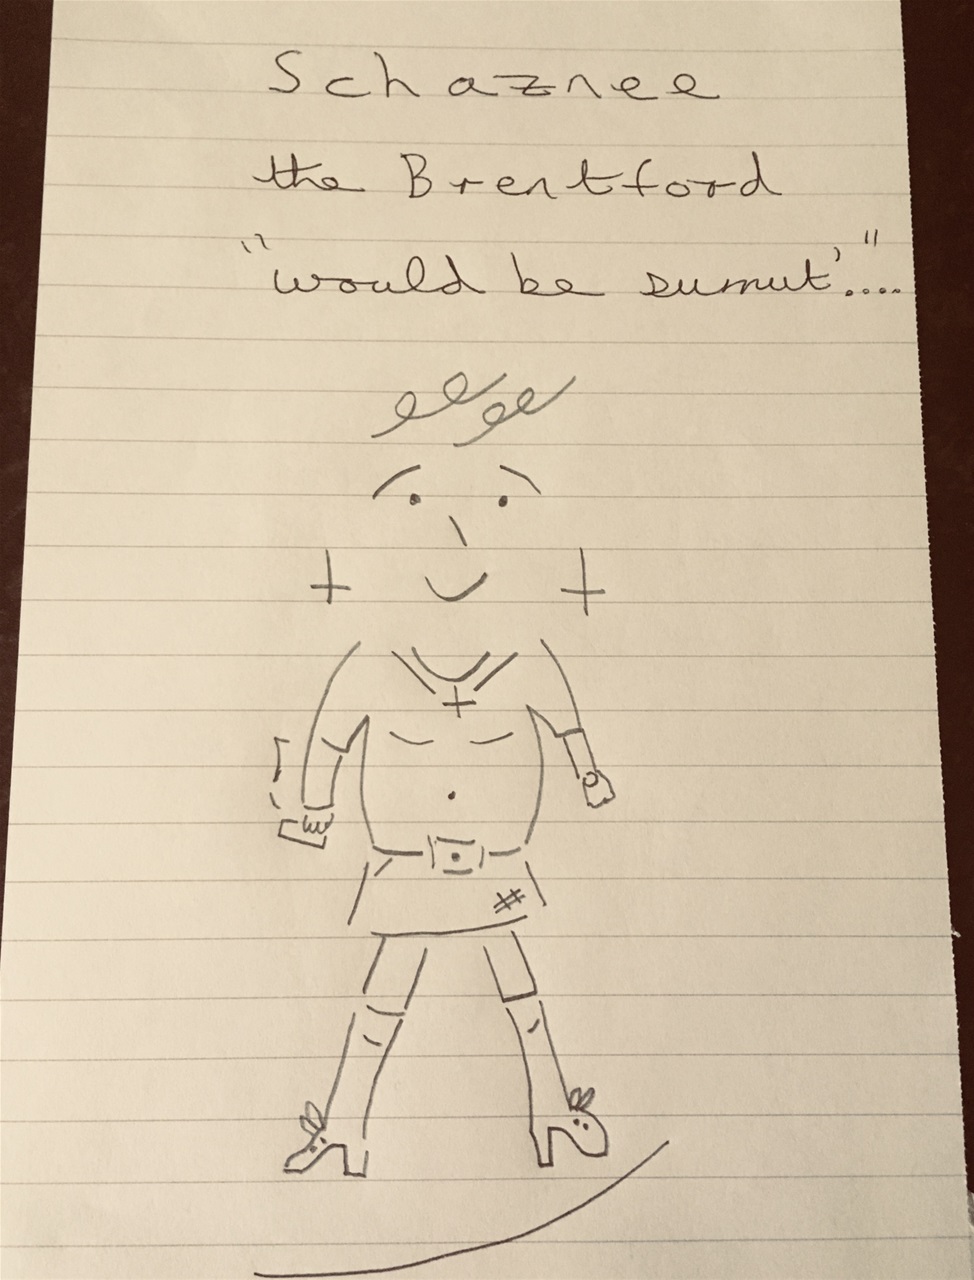 Schaznee
the Brentford
"would be sumut'...."